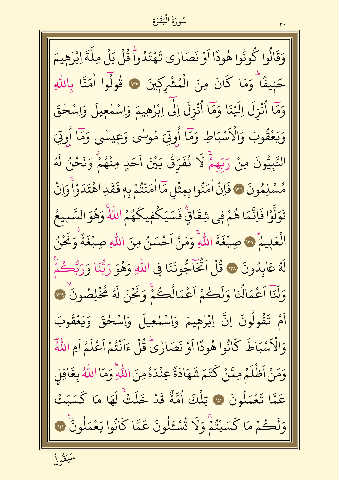 سُورَةُ الْبَقَرَةِ
٢٠
وَقَالُوا كُونُوا هُودًا اَوْ نَصَارٰى تَهْتَدُواۜ قُلْ بَلْ مِلَّةَ اِبْرٰهِيمَ
حَنِيفًاۜ وَمَا كَانَ مِنَ الْمُشْرِكِينَ ﴿١٣٥﴾ قُولُٓوا اٰمَنَّا بِاللّٰهِ
وَمَٓا اُنْزِلَ اِلَيْنَا وَمَٓا اُنْزِلَ اِلٰٓى اِبْرٰهِيمَ وَاِسْمٰعِيلَ وَاِسْحٰقَ
وَيَعْقُوبَ وَالْاَسْبَاطِ وَمَٓا اُوتِيَ مُوسٰى وَعِيسٰى وَمَٓا اُوتِيَ
النَّبِيُّونَ مِنْ رَبِّهِمْۚ لَا نُفَرِّقُ بَيْنَ اَحَدٍ مِنْهُمْۘ وَنَحْنُ لَهُ
مُسْلِمُونَ ﴿١٣٦﴾ فَاِنْ اٰمَنُوا بِمِثْلِ مَٓا اٰمَنْتُمْ بِهٖ فَقَدِ اهْتَدَوْاۚ وَاِنْ
تَوَلَّوْا فَاِنَّمَا هُمْ فِي شِقَاقٍۚ فَسَيَكْفِيكَهُمُ اللّٰهُۚ وَهُوَ السَّمِيعُ
الْعَلِيمُۜ ﴿١٣٧﴾ صِبْغَةَ اللّٰهِۚ وَمَنْ اَحْسَنُ مِنَ اللّٰهِ صِبْغَةًۘ وَنَحْنُ
لَهُ عَابِدُونَ ﴿١٣٨﴾ قُلْ اَتُحَٓاجُّونَنَا فِي اللّٰهِ وَهُوَ رَبُّنَا وَرَبُّكُمْۚ
وَلَنَٓا اَعْمَالُنَا وَلَكُمْ اَعْمَالُكُمْۚ وَنَحْنُ لَهُ مُخْلِصُونَۙ ﴿١٣٩﴾
اَمْ تَقُولُونَ اِنَّ اِبْرٰهِيمَ وَاِسْمٰعِيلَ وَاِسْحٰقَ وَيَعْقُوبَ
وَالْاَسْبَاطَ كَانُوا هُودًا اَوْ نَصَارٰىۜ قُلْ ءَاَنْتُمْ اَعْلَمُ اَمِ اللّٰهُۜ
وَمَنْ اَظْلَمُ مِمَّنْ كَتَمَ شَهَادَةً عِنْدَهُ مِنَ اللّٰهِۜ وَمَا اللّٰهُ بِغَافِلٍ
عَمَّا تَعْمَلُونَ ﴿١٤٠﴾ تِلْكَ اُمَّةٌ قَدْ خَلَتْۚ لَهَا مَا كَسَبَتْ
وَلَكُمْ مَا كَسَبْتُمْۚ وَلَا تُسْـَٔلُونَ عَمَّا كَانُوا يَعْمَلُونَ۟ ﴿١٤١﴾
سَيَقُولُ